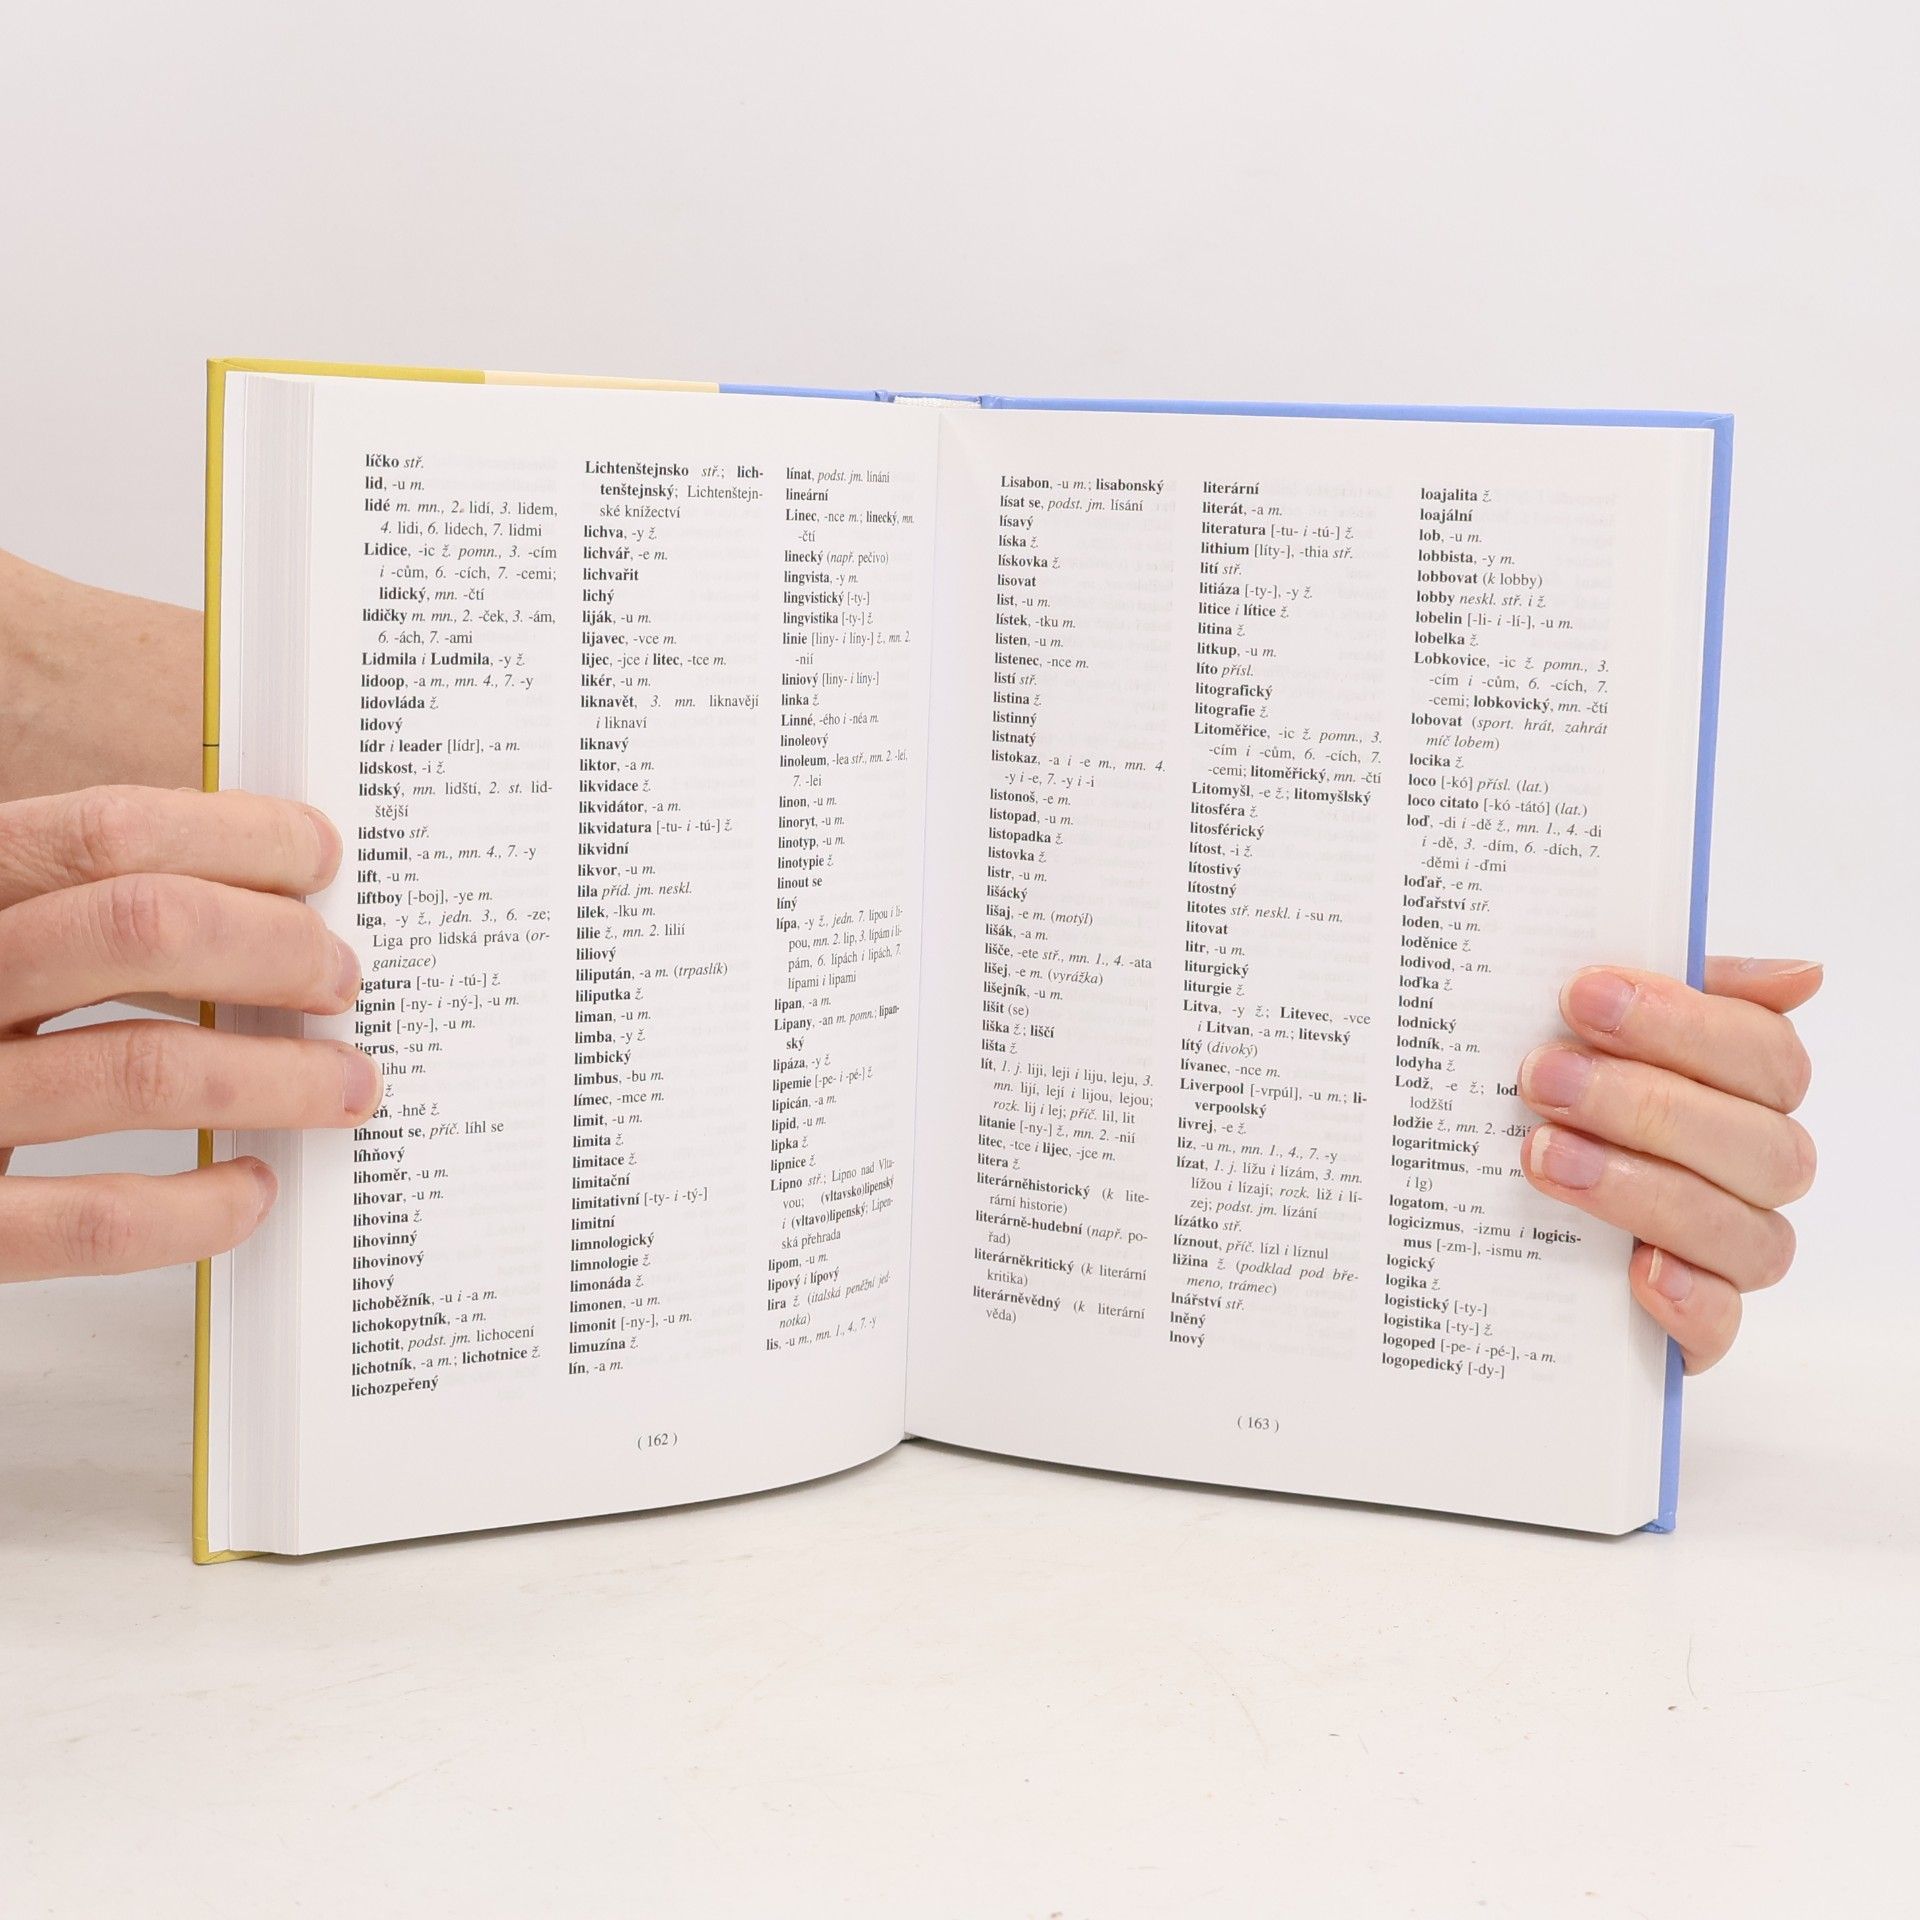 líčko stř.
lid, -u m.
lidé m. mn., 2. lidí, 3. lidem,
4. lidi, 6. lidech, 7. lidmi
Lidice, -ic ž. pomn., 3. -cím
i -cům, 6. -cích, 7. -cemi;
lidický, mn. -čtí
lidičky m. mn., 2. -ček, 3. -ám,
6. -ách, 7. -ami
Lidmila i Ludmila, -y ž.
lidoop, -a m., mn. 4., 7. -y
lidovláda ž.
lidový
lídr i leader [lídr], -a m.
lidskost, -i ž.
lidský, mn. lidští, 2. st. lid-
štější
lidstvo stř.
lidumil, -a m., mn. 4., 7. -y
lift, -u m.
liftboy [-boj], -ye m.
liga, -y ž., jedn. 3., 6. -ze;
Liga pro lidská práva (or-
ganizace)
igatura [-tu- i -tú-] ž.
lignin [-ny- i -ný-], -u m.
lignit [-ny-], -u m.
ligrus, -su m.
lihu m.
ž.
eň, -hně ž.
líhnout se, příč. líhl se
líhňový
lihoměr, -u m.
lihovar, -u m.
lihovina ž.
lihovinný
lihovinový
lihový
lichoběžník, -u i -a m.
lichokopytník, -a m.
lichotit, podst. jm. lichocení
lichotník, -a m.; lichotnice ž.
lichozpeřený
Lichtenštejnsko stř.; lich-
tenštejnský; Lichtenštejn-
ské knížectví
lichva, -y ž.
lichvář, -e m.
lichvařit
lichý
liják, -u m.
lijavec, -vce m.
lijec, -jce i litec, -tce m.
likér, -u m.
liknavět, 3. mn. liknavějí
i liknaví
liknavý
liktor, -a m.
likvidace ž.
likvidátor, -a m.
likvidatura [-tu- i -tú-] ž.
likvidní
likvor, -u m.
lila příd. jm. neskl.
lilek, -lku m.
lilie ž., mn. 2. lilií
liliový
lilipután, -a m. (trpaslík)
liliputka ž.
liman, -u m.
limba, -y ž.
limbický
limbus, -bu m.
límec, -mce m.
limit, -u m.
limita ž.
limitace ž.
limitační
limitativní [-ty- i -tý-]
limitní
limnologický
limnologie ž.
limonáda ž.
limonen, -u m.
limonit [-ny-], -u m.
limuzína ž.
lín, -a m.
línat, podst. jm. línání
lineární
Linec, -nce m.; linecký, mn.
-čtí
linecký (např. pečivo)
lingvista, -y m.
lingvistický [-ty-]
lingvistika [-ty-] ž.
linie [liny- i líny-] ž., mn. 2.
-nií
liniový [liny- i líny-]
linka ž.
Linné, -ého i -néa m.
linoleový
linoleum, -lea stř., mn. 2. -leí,
7. -lei
linon, -u m.
linoryt, -u m.
linotyp, -u m.
linotypie ž.
linout se
líný
lípa, -y ž., jedn. 7. lípou i li-
pou, mn. 2. lip, 3. lípám i li-
pám, 6. lípách i lipách, 7.
lípami i lipami
lipan, -a m.
Lipany, -an m. pomn.; lipan-
ský
lipáza, -y ž.
lipemie [-pe- i -pé-] ž.
lipicán, -a m.
lipid, -u m.
lipka ž.
lipnice ž.
Lipno stř.; Lipno nad Vlta-
vou; (vltavsko)lipenský
i (vltavo)lipenský; Lipen-
ská přehrada
lipom, -u m.
lipový i lípový
lira ž. (italská peněžní jed-
notka)
lis, -u m., mn. 1., 4., 7. -y
( 162 )
Lisabon, -u m.; lisabonský
lísat se, podst. jm. lísání
lísavý
líska ž.
lískovka ž.
lisovat
list, -u m.
lístek, -tku m.
listen, -u m.
listenec, -nce m.
listí stř.
listina ž.
listinný
listnatý
listokaz, -a i -e m., mn. 4.
-y i -e, 7. -y i -i
listonoš, -e m.
listopad, -u m.
listopadka ž.
listovka ž.
listr, -u m.
lišácký
lišaj, -e m. (motýl)
lišák, -a m.
lišče, -ete stř., mn. 1., 4. -ata
lišej, -e m. (vyrážka)
lišejník, -u m.
lišit (se)
liška ž.; liščí
lišta ž.
lít, 1. j. liji, leji i liju, leju, 3.
mn. lijí, lejí i lijou, lejou;
rozk. lij i lej; příč. lil, lit
litanie [-ny-] ž., mn. 2. -nií
litec, -tce i lijec, -jce m.
litera ž.
literárněhistorický (k lite-
rární historie)
literárně-hudební (např. po-
řad)
literárněkritický (k literární
kritika)
literárněvědný (k literární
věda)
literární
literát, -a m.
literatura [-tu- i -tú-] ž.
lithium [líty-], -thia stř.
lití stř.
litiáza [-ty-], -y ž.
litice i lítice ž.
litina ž.
litkup, -u m.
líto přísl.
litografický
litografie ž.
Litoměřice, -ic ž. pomn., 3.
-cím i -cům, 6. -cích, 7.
-cemi; litoměřický, mn. -čtí
Litomyšl, -e ž.; litomyšlský
litosféra ž.
litosférický
lítost, -i ž.
lítostivý
lítostný
litotes stř. neskl. i -su m.
litovat
litr, -u m.
liturgický
liturgie ž.
Litva, -y ž.; Litevec, -vce
i Litvan, -a m.; litevský
lítý (divoký)
lívanec, -nce m.
Liverpool [-vrpúl], -u m.; li-
verpoolský
livrej, -e ž.
liz, -u m., mn. 1., 4., 7. -y
lízat, 1. j. lížu i lízám, 3. mn.
lížou i lízají; rozk. liž i lí-
zej; podst. jm. lízání
lízátko stř.
líznout, příč. lízl i líznul
ližina ž. (podklad pod bře-
meno, trámec)
lnářství stř.
lněný
lnový
loajalita ž.
loajální
lob, -u m.
lobbista, -y m.
lobbovat (k lobby)
lobby neskl. stř. i ž.
lobelin [-li- i -lí-], -u m.
lobelka ž.
Lobkovice, -ic ž. pomn., 3.
-cím i -cům, 6. -cích, 7.
-cemi; lobkovický, mn. -čtí
lobovat (sport. hrát, zahrát
míč lobem)
locika ž.
loco [-kó] přísl. (lat.)
loco citato [-kó -tátó] (lat.)
loď, -di i -dě ž., mn. 1., 4. -di
i -dě, 3. -dím, 6. -dích, 7.
-děmi i -ďmi
loďař, -e m.
loďařství stř.
loden, -u m.
loděnice ž.
lodivod, -a m.
loďka ž.
lodní
lodnický
lodník, -a m.
lodyha ž.
Lodž, -e ž.; lod
lodžští
lodžie ž., mn. 2. -dži
logaritmický
logaritmus, -mu m.
i lg)
logatom, -u m.
logicizmus, -izmu i logicis-
mus [-zm-], -ismu m.
logický
logika ž.
logistický [-ty-]
logistika [-ty-] ž.
logoped [-pe- i -pé-], -a m.
logopedický [-dy-]
( 163 )